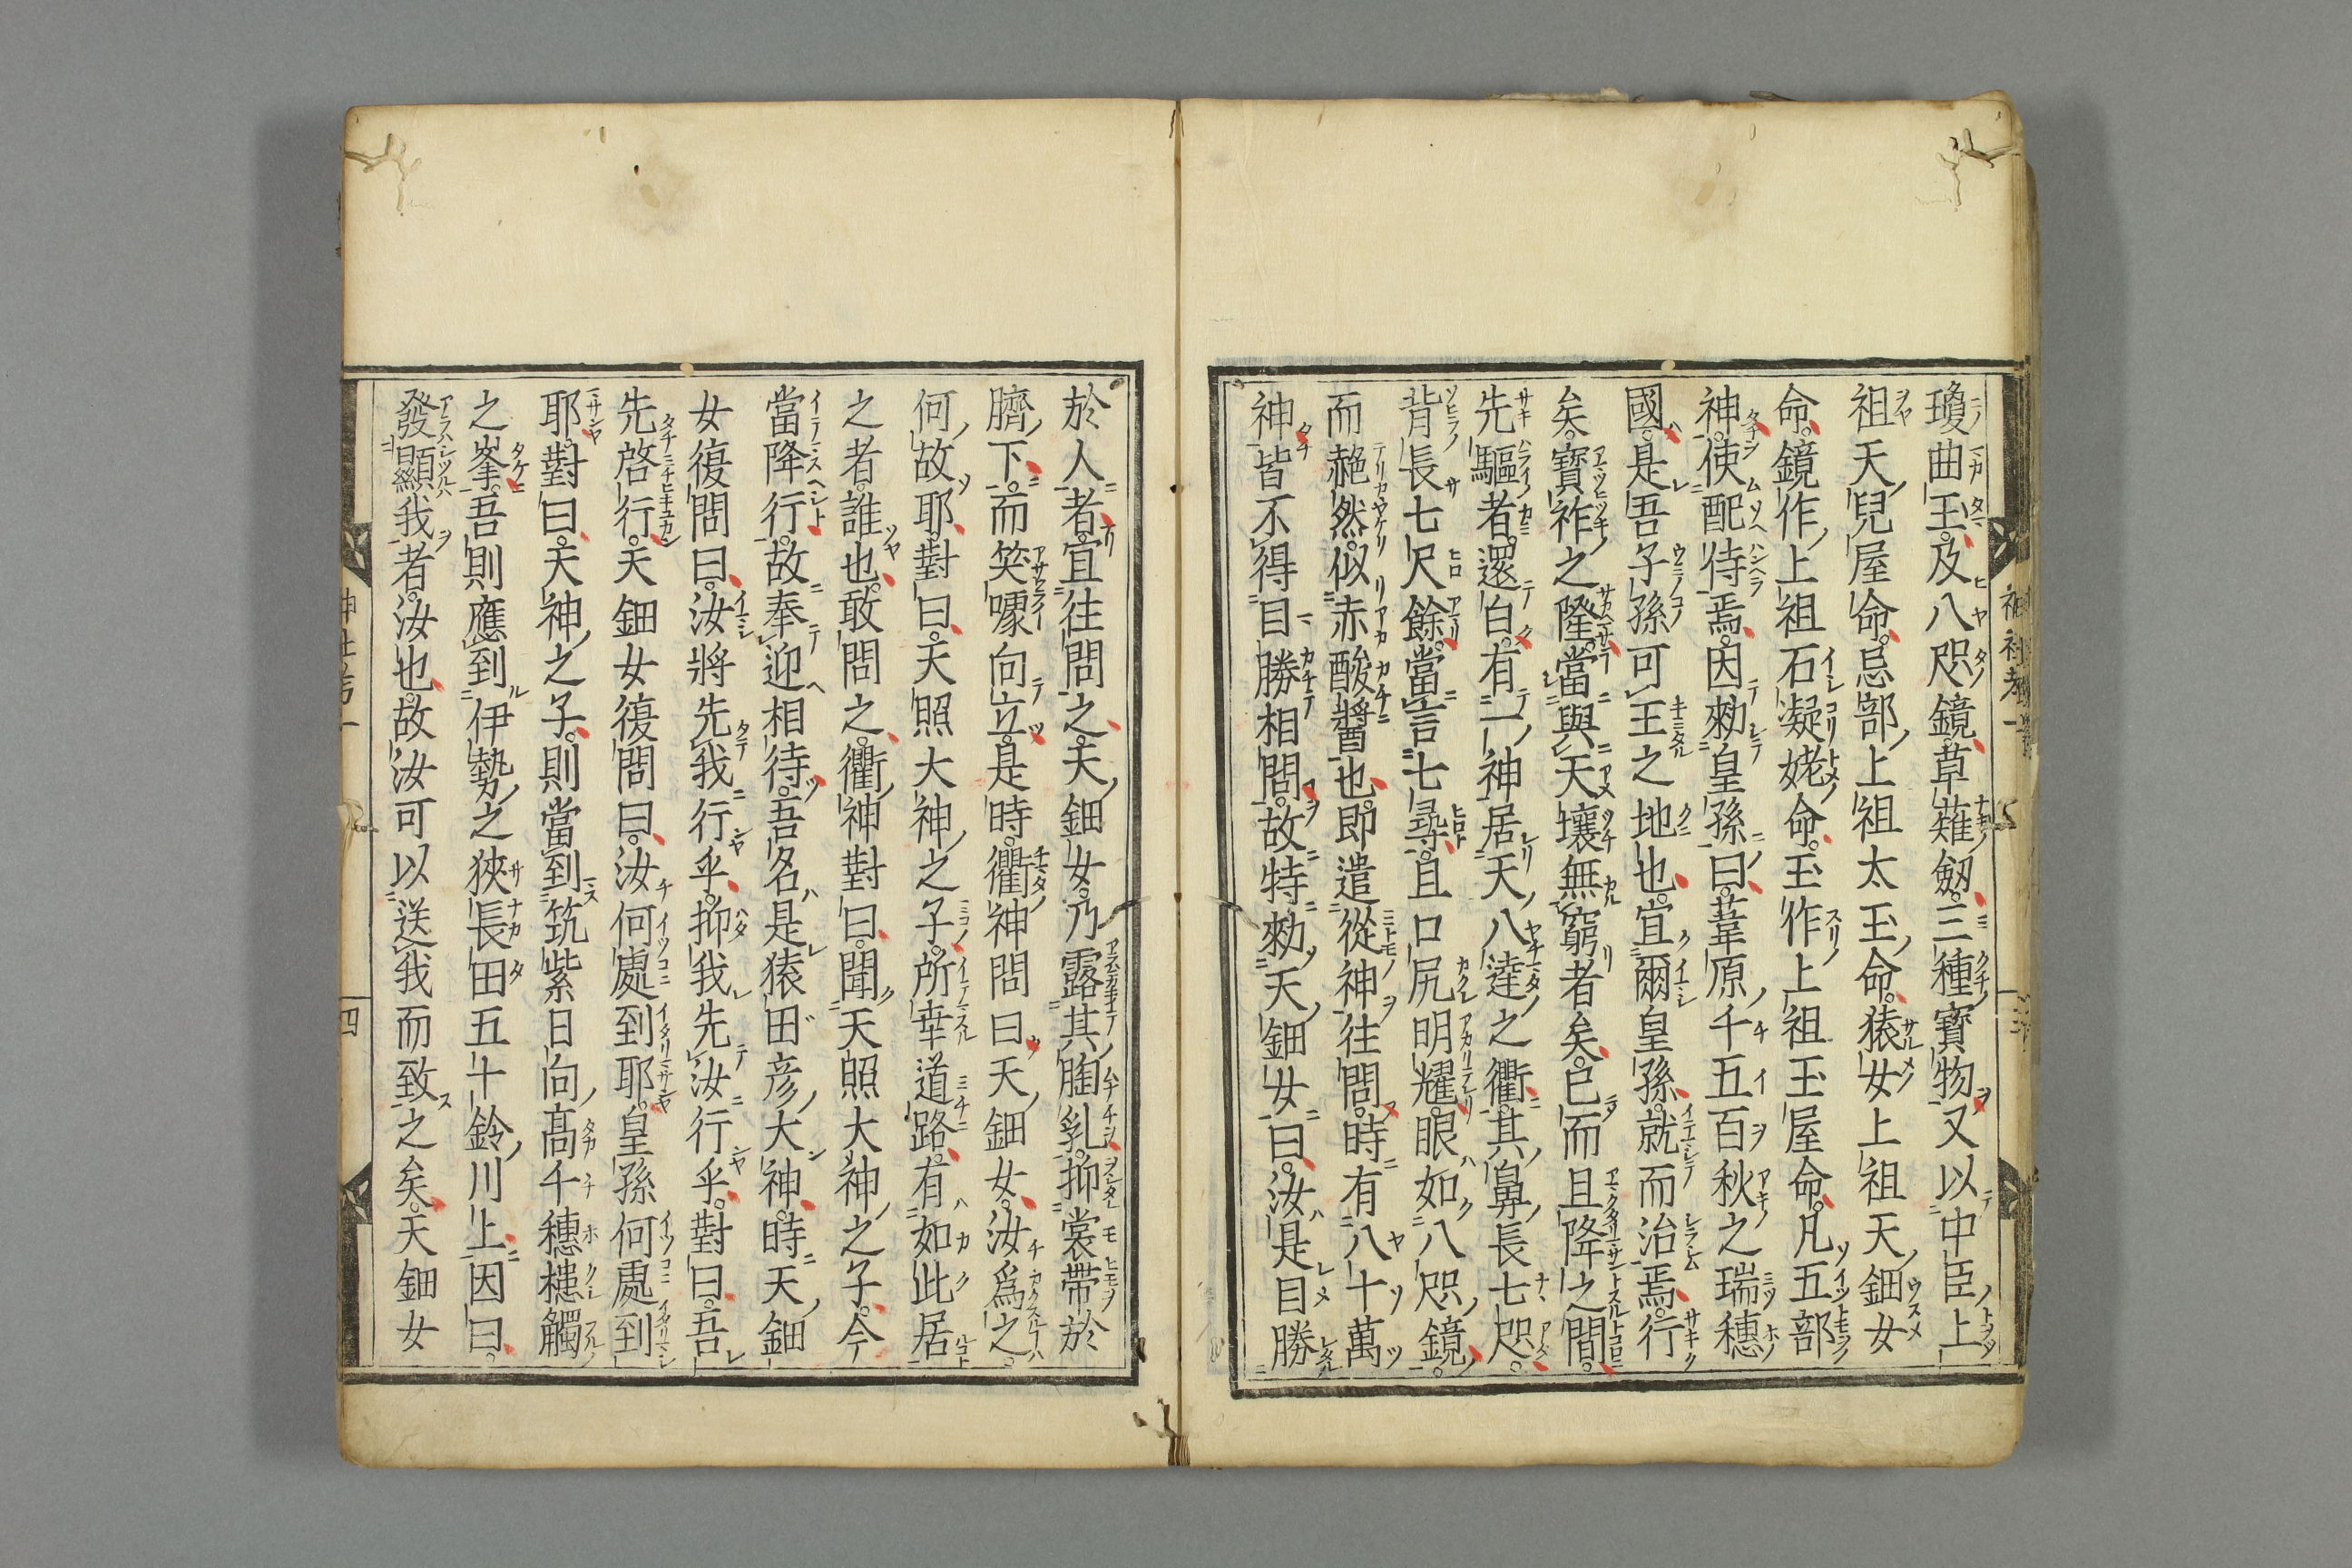 瓊曲玉及八咫鏡草薙劔三種寶物又以中臣上
祖天兒屋命忌部上祖太玉命猿女上祖天鈿女
命鏡作上祖石凝姥命玉作上祖玉屋命凡五部
神使配侍焉因勑皇孫曰葦原千五百秋之瑞穗
國是吾子孫可王之地也宜爾皇孫就而治焉行
矣寶祚之隆當與天壤無窮者矣已而且降之間
先驅者還白有一神居天八達之衢其鼻長七咫
背長七尺餘當言七尋且口尻明耀眼如八咫鏡
而赩然似赤酸醬也即遣從神往問時有八十萬
神皆不得目勝相問故特勑天鈿女曰汝是目勝
於人者宜往問之天鈿女乃露其胸乳抑裳帶於
臍下而笑噱向立是時衢神問曰天鈿女汝爲之
何故耶對曰天照大神之子所幸道路有如此居
之者誰也敢問之衢神對曰聞天照大神之子今
當降行故奉迎相待吾名是猿田彦大神時天鈿
女復問曰汝將先我行乎抑我先汝行乎對曰吾
先啓行天鈿女復問曰汝何處到耶皇孫何處到
耶對曰天神之子則當到筑紫日向髙千穗槵觸
之峯吾則應到伊勢之狹長田五十鈴川上因曰
發顯我者汝也故汝可以送我而致之矣天鈿女
四